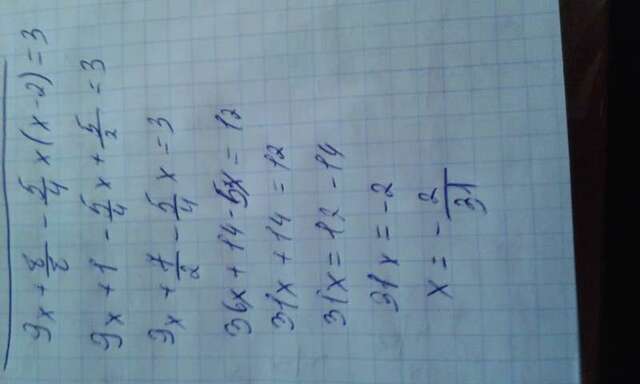 9x + 2/2 - 5/4 x (x - 2) = 3
9x + 1 - 5/4 x + 5/2 = 3
9x + 7/2 - 5/4 x = 3
36x + 14 - 5x = 12
31x + 14 = 12
31x = 12 - 14
31x = -2
x = - 2/31